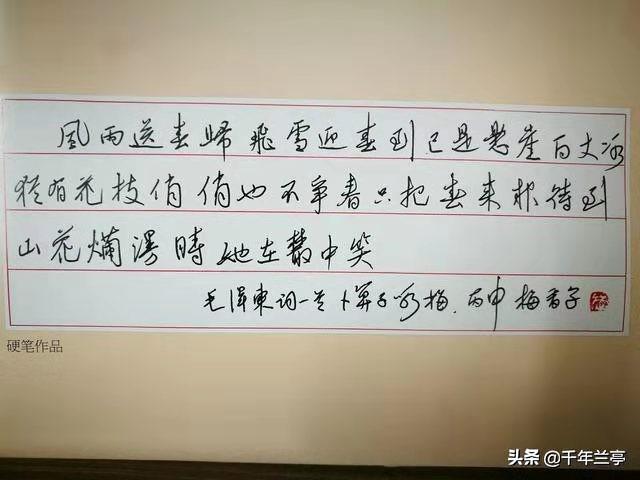 風雨送春歸飛雪迎春到已是懸崖百丈冰
猶有花枝俏俏也不爭春只把春來報待到
山花爛漫時她在叢中笑
毛澤東詞一首卜算子詠梅.丙申梅香子
硬笔作品
头条@千年兰亭